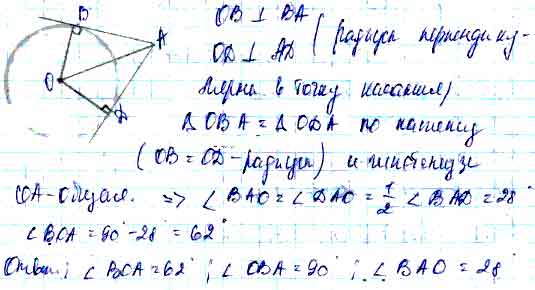 B
A
O
Д
OB ⊥ BA
OД ⊥ AД (радиусы перпендику-
лярна в точку касания)
Δ OBA = Δ OДA по катету
(OB = OД - радиусы) и гипотенузе
OA - общая. => ∠ BAO = ∠ ДAO = 1/2 ∠ BAД = 28°
∠ BOA = 90° - 28° = 62°
Ответ: ∠ BOA = 62° ; ∠ OBA = 90° ; ∠ BAO = 28°